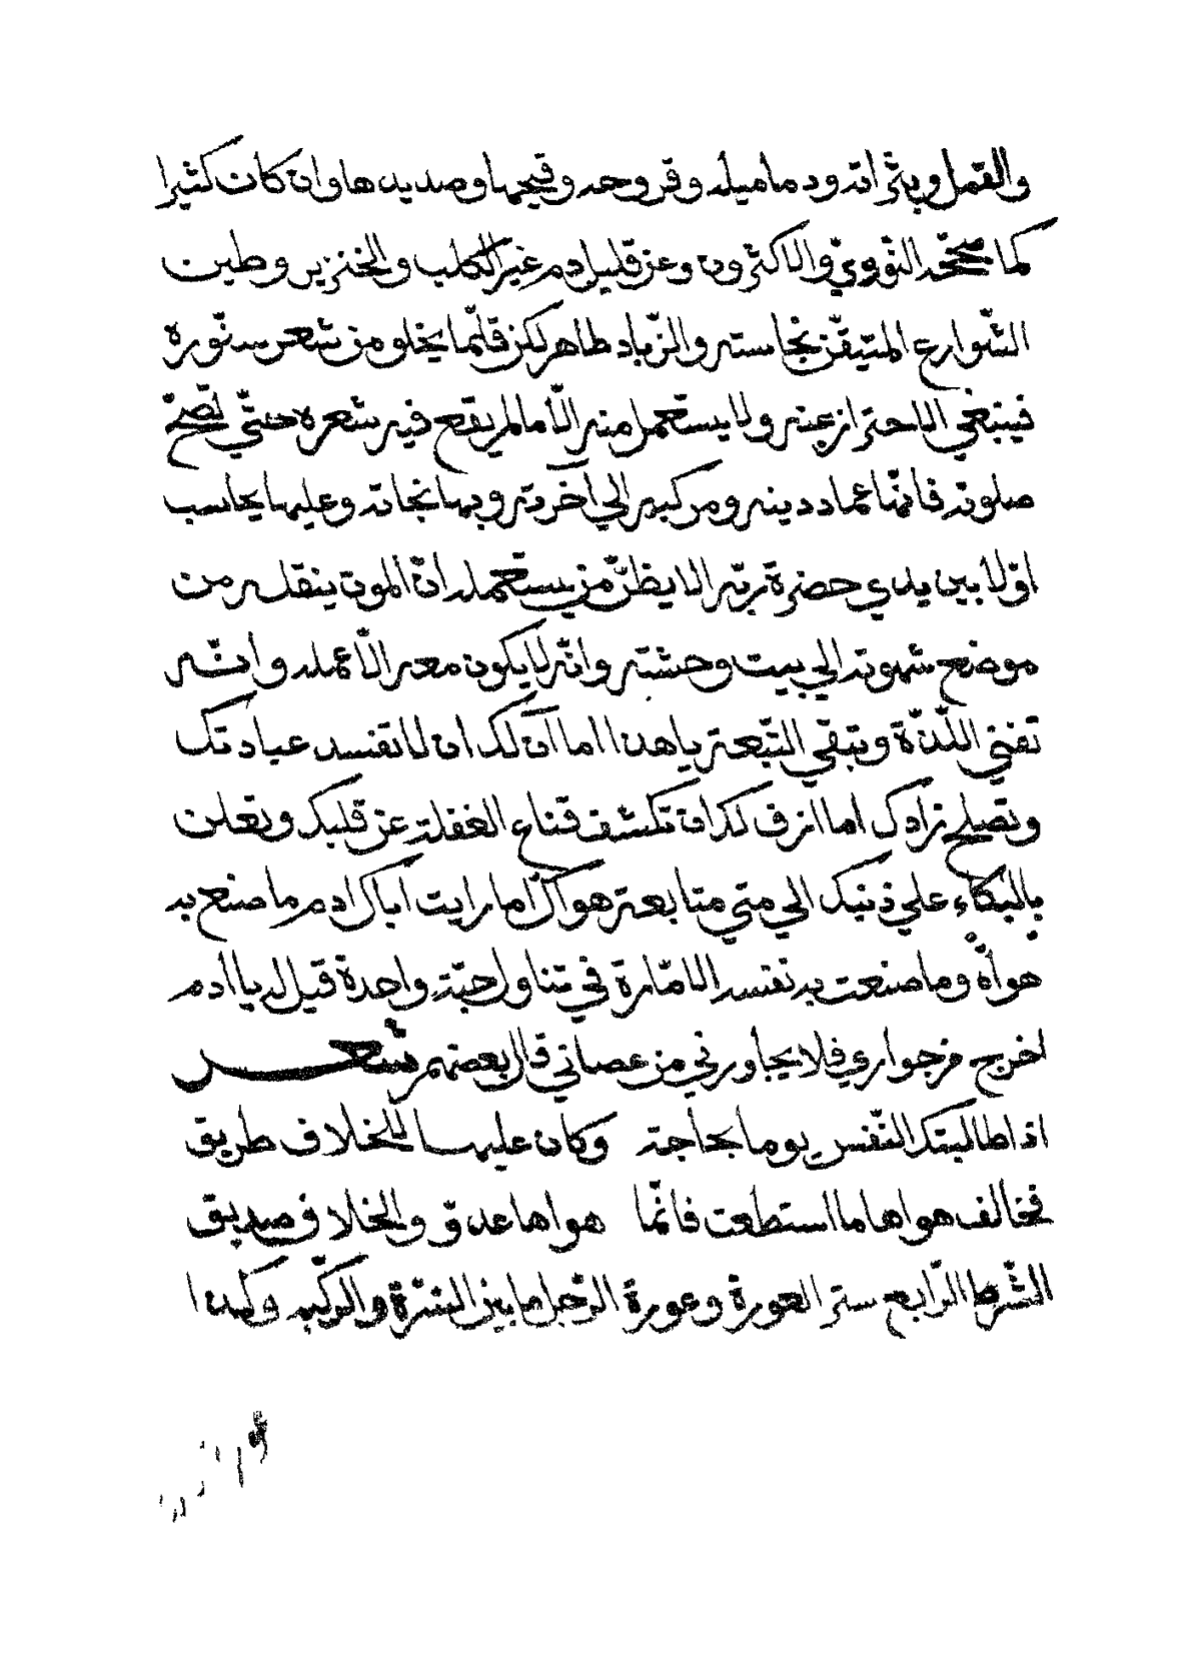 والقمل وبثراته ودماميله وقروحه وقيحها وصديدها وان كان كثيرا
كما صححه النّوويّ والاكثرون وعن قليل دم غير الكلب والخنزير وطين
الشّوارع المتيقّن نجاسته والزّباد طاهر لكن قلّما يخلو من شعر سنّوره
فينبغي الاحتراز عنه ولا يستعمل منه الّا ما لم يقع فيه شعره حتّي تصحّ
صلوته فانّها عماد دينه ومركبه الي آخرته وبها نجاته وعليها يحاسب
اوّلا بين يدي حضرة ربّه الا يظنّ من يستعمله انّ الموت ينقله من
موضع شهوته الي بيت وحشته وانّه لا يكون معه الّا عمله وانّه
تفني اللّذّة وتبقي التّبعة يا هذا اما آن لك ان لا تفسد عبادتك
وتصلح زادك اما ازف لك ان تكشف قناع الغفلة عن قلبك وتعلن
بالبكاء علي ذنبك الي متي متابعة هواك اما رايت اباك ادم ما صنع به
هواه وما صنعت به نفسه الامّارة في تناول حبّة واحدة قيل له يا ادم
اخرج من جواري فلا يجاورني من عصاني قال بعضهم شعر
اذا طالبتك النّفس يوما بحاجة وكان عليها للخلاف طريق
فخالف هواها ما استطعت فانّما هواها عدوّ والخلاف صديق
الشّرط الرّابع ستر العورة وعورة الرّجل ما بين السّرّة والرّكبه وكذا